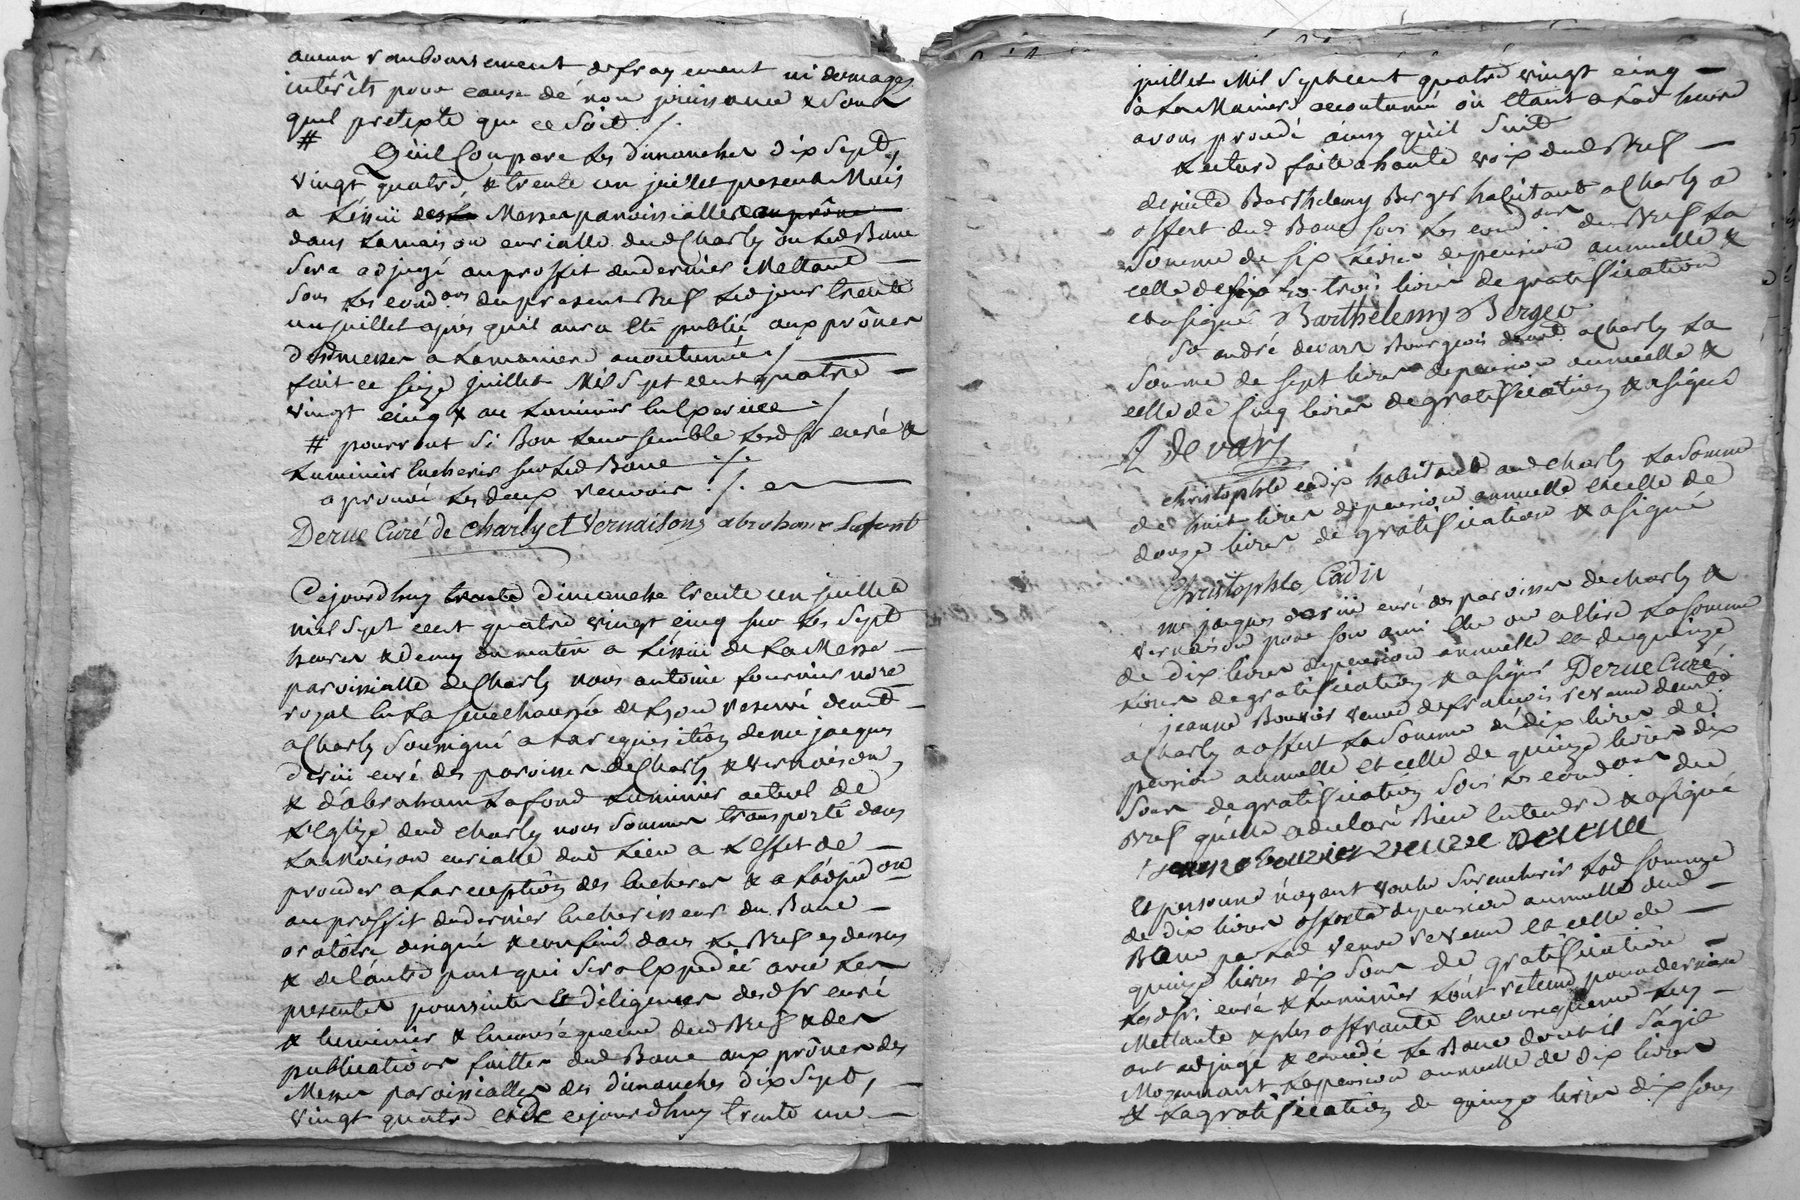 aucun remboursement de frayement ni domages
intérêts pour cause de non jouissance & sous
quel pretexte que ce soit ./.
# Qu'il Compare les dimanches dix Sept,
vingt quatre, & trente un juillet present Mois
a L'essüe des Messes paroissialles au prône
dans La maison curialle dud Charly ou Led Banc
Sera adjugé au proffit du dernier Mettant
Sous Les condons du present Bref Led jour trente
un juillet apres qu'il aura Eté publié aux prônes
desd messes a La maniere accoutumée ./.
fait ce seize juillet Mil Sept cent quatre
vingt cinq & au Luminier ./.
# pourront Si Bon Leur semble Lesd Sr curé &
Luminier Encherir sur Led Banc ./.
aprouvé Les deux renvois ./.
Derue Curé de Charly et Vernaison abraham Lafont
Cejourd'huy trente dimanche trente un juillet
mil Sept cent quatre vingt cinq sur Les Sept
heures & demy du matin a L'essüe de La Messe
paroissialle de Charly nous antoine fournier nore
royal En La Senechaussée de Lyon reservé demt
a Charly Soussigné a La requisition de me jacques
derüe curé des paroisses de Charly & vernaison
& d'abraham Lafond Luminier actuel de
L'Eglize dud Charly nous Sommes transporté dans
La Maison curialle dud Lieu a L'Effet de
proceder a La reception des Encheres & a L'adjudon
au proffit du dernier Encherisseur du Banc
oratoire designé & confiné dans Le Bref cy dessus
& de L'autre part qui Sera Expedié avec Les
presentes poursuites & diligences desd Sr curé
& luminier & En consequence dud Bref & des
publications faittes dud Banc aux prônes des
Messes paroissialles des dimanches dix Sept,
vingt quatre & de cejourd'huy trente un
juillet Mil Sept cent quatre vingt cinq
a La Maniere accoutumée où Etant a Lad heure
avons procedé ainsy qu'il Suit
Lecture faite a haute voix dud Bref
desuite Barthelemy Berger habitant a Charly a
offert dud Banc sous Les condons du Bref La
Somme de Six Livres de pension annuelle &
celle de trois livres de gratiffication
& a signé Barthelemy Berger
Sr andré devars Bourgeois demt a Charly La
Somme de sept livres de pension annuelle &
celle de Cinq livres de gratiffication & a signé
A Devars
Christophle cadix habitant aud Charly La Somme
de huit livres de pension annuelle et celle de
douze livres de gratiffication & a signé
Christophle Cadix
me jacques derüe curé des paroisses de Charly &
vernaison pour son ami Elu ou a Elire La Somme
de dix livres de pension annuelle et de quinze
Livres de gratiffication & a signé Derue Curé.
jeanne Bouvier veuve de francois revenu demte
a Charly a offert La Somme de dix livres de
pension annuelle et celle de quinze livres dix
Sous de gratiffication Sous Les condons dud
Bref qu'elle a declaré Bien Entendre & a signé
jeanne bouvier veuve
Et personne n'ayant voulu Surencherir Lad Somme
de dix livres offerte de pension annuelle dud
Banc par Lad veuve revenu et celle de
quinze livres dix Sous de gratiffication
Lesd Sr curé & Luminier L'ont retenu pour derniere
Mettante & plus offrante En consequence Luy
ont adjugé & concedé Le Banc dont il S'agit
Moyennant La pension annuelle de dix livres
& La gratiffication de quinze livres dix Sous